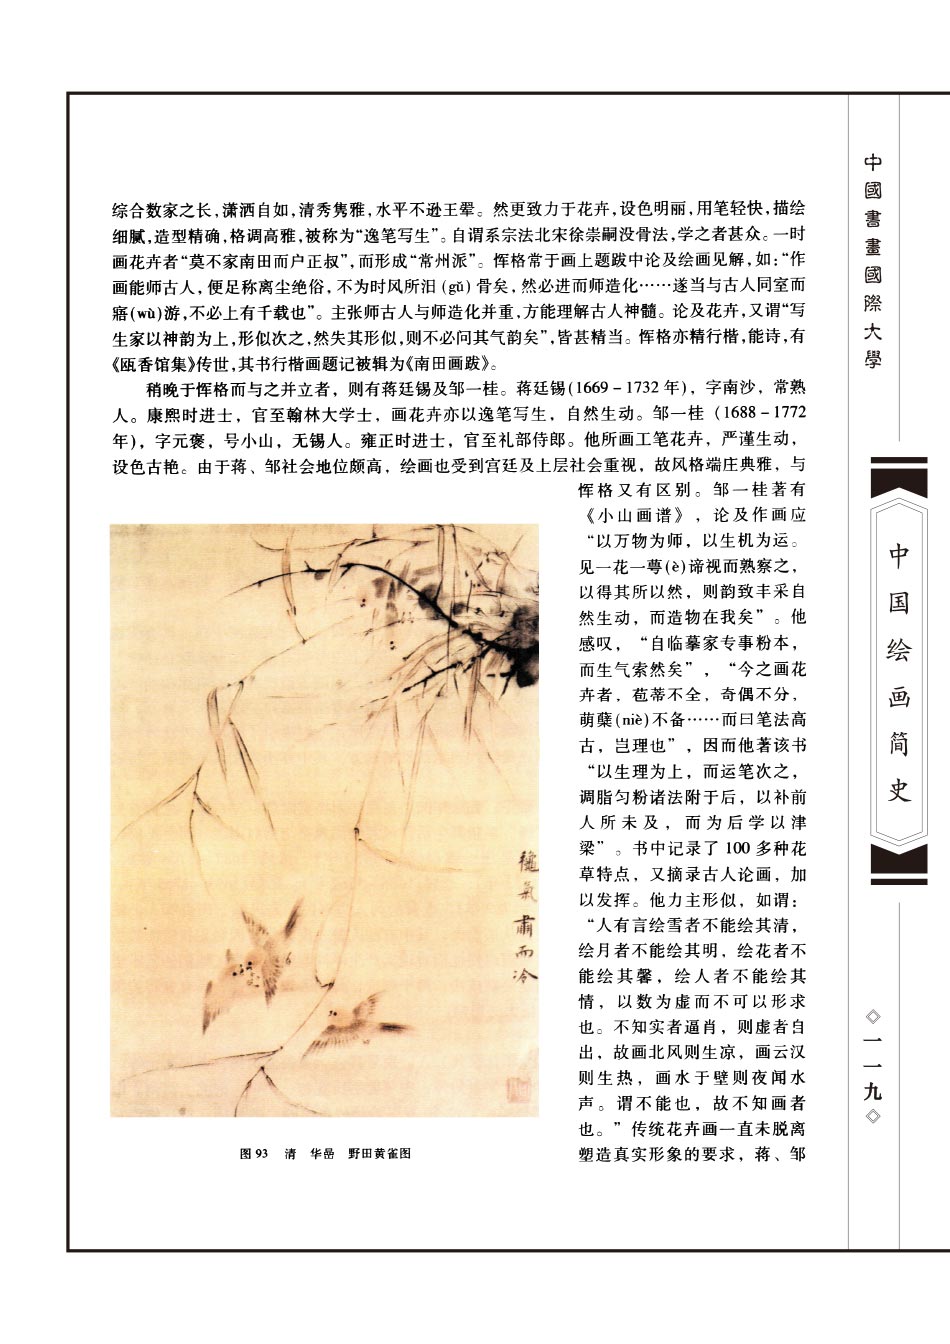 综合数家之长,潇洒自如,清秀隽雅,水平不逊王翚。然更致力于花卉,设色明丽,用笔轻快,描绘
细腻,造型精确,格调高雅,被称为“逸笔写生”。自谓系宗法北宋徐崇嗣没骨法,学之者甚众。一时
画花卉者“莫不家南田而户正叔”,而形成“常州派”。恽格常于画上题跋中论及绘画见解,如:“作
画能师古人,便足称离尘绝俗,不为时风所汩(gǔ)骨矣,然必进而师造化……遂当与古人同室而
寤(wù)游,不必上有千载也”。主张师古人与师造化并重,方能理解古人神髓。论及花卉,又谓“写
生家以神韵为上,形似次之,然失其形似,则不必问其气韵矣”,皆甚精当。恽格亦精行楷,能诗,有
《瓯香馆集》传世,其书行楷画题记被辑为《南田画跋》。
稍晚于恽格而与之并立者，则有蒋廷锡及邹一桂。蒋廷锡(1669－1732年)，字南沙，常熟
人。康熙时进士，官至翰林大学士，画花卉亦以逸笔写生，自然生动。邹一桂（1688－1772
年)，字元褒，号小山，无锡人。雍正时进士，官至礼部侍郎。他所画工笔花卉，严谨生动，
设色古艳。由于蒋、邹社会地位颇高，绘画也受到宫廷及上层社会重视，故风格端庄典雅，与
恽格又有区别。邹一桂著有
《小山画谱》，论及作画应
“以万物为师，以生机为运。
见一花一萼(è)谛视而熟察之，
以得其所以然，则韵致丰采自
然生动，而造物在我矣”。他
感叹，“自临摹家专事粉本，
而生气索然矣”，“今之画花
卉者，苞蒂不全，奇偶不分，
萌蘖(niè)不备……而曰笔法高
古，岂理也”，因而他著该书
“以生理为上，而运笔次之，
调脂匀粉诸法附于后，以补前
人所未及，而为后学以津
梁”。书中记录了100多种花
草特点，又摘录古人论画，加
以发挥。他力主形似，如谓：
“人有言绘雪者不能绘其清，
绘月者不能绘其明，绘花者不
能绘其馨，绘人者不能绘其
情，以数为虚而不可以形求
也。不知实者逼肖，则虚者自
出，故画北风则生凉，画云汉
则生热，画水于壁则夜闻水
声。谓不能也，故不知画者
也。”传统花卉画一直未脱离
塑造真实形象的要求，蒋、邹
穐氣肅而冷
图93 清 华嵒 野田黄雀图
中國書畫國際大學
中国绘画简史
◇一一九◇